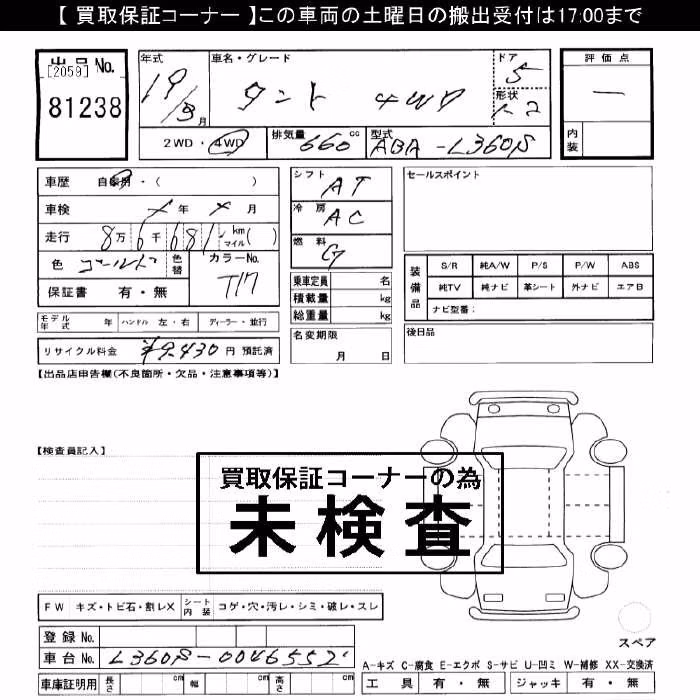 【 買取保証コーナー 】この車両の土曜日の搬出受付は17:00まで
出品No.
[2059]
81238
年式
19/3月
車名・グレード
タント 4WD
ドア
5
形状
評価点
—
内装
2WD・4WD
排気量 660 cc
型式 ABA-L360S
車歴 自家用・( )
車検 年 月
走行 8万6千681 km マイル( )
色 ゴールド 色替
カラーNo. T17
保証書 有・無
シフト AT
冷房 AC
燃料 G
乗車定員 名
積載量 kg
総重量 kg
セールスポイント
装備品
S/R 純A/W P/S P/W ABS
純TV 純ナビ 革シート 外ナビ エアB
ナビ型番:
モデル年式 年 ハンドル 左・右 ディーラー・並行
リサイクル料金 ¥9,430 円 預託済
名変期限 月 日
後日品
【出品店申告欄(不良箇所・欠品・注意事項等)】
【検査員記入】
買取保証コーナーの為
未検査
FW キズ・トビ石・割レX
シート内装 コゲ・穴・汚レ・シミ・破レ・スレ
登録No.
車台No. L360S-0046552
車庫証明用 長さ cm 幅 cm 高さ cm
スペア
A-キズ C-腐食 E-エクボ S-サビ U-凹ミ W-補修 XX-交換済
工具 有・無 ジャッキ 有・無